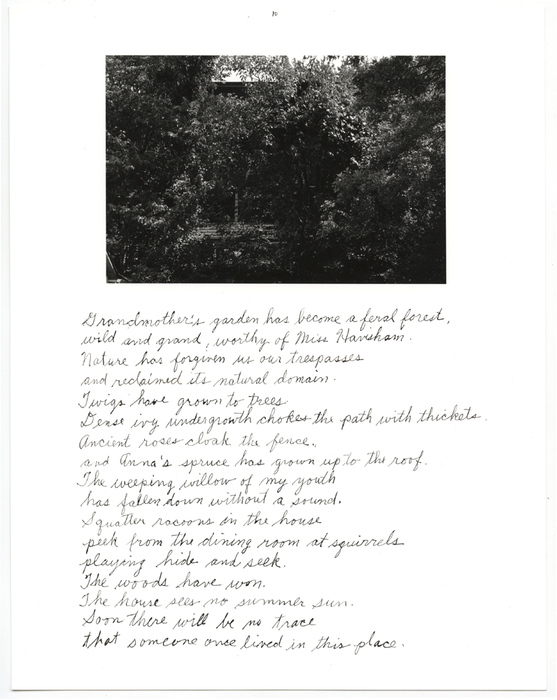 10
Grandmother's garden has become a feral forest,
wild and grand, worthy of Miss Havisham.
Nature has forgiven us our trespasses
and reclaimed its natural domain.
Twigs have grown to trees.
Dense ivy undergrowth chokes the path with thickets.
Ancient roses cloak the fence,
and Anna's spruce has grown up to the roof.
The weeping willow of my youth
has fallen down without a sound.
Squatter racoons in the house
peek from the dining room at squirrels
playing hide and seek.
The woods have won.
The house sees no summer sun.
Soon there will be no trace
that someone once lived in this place.